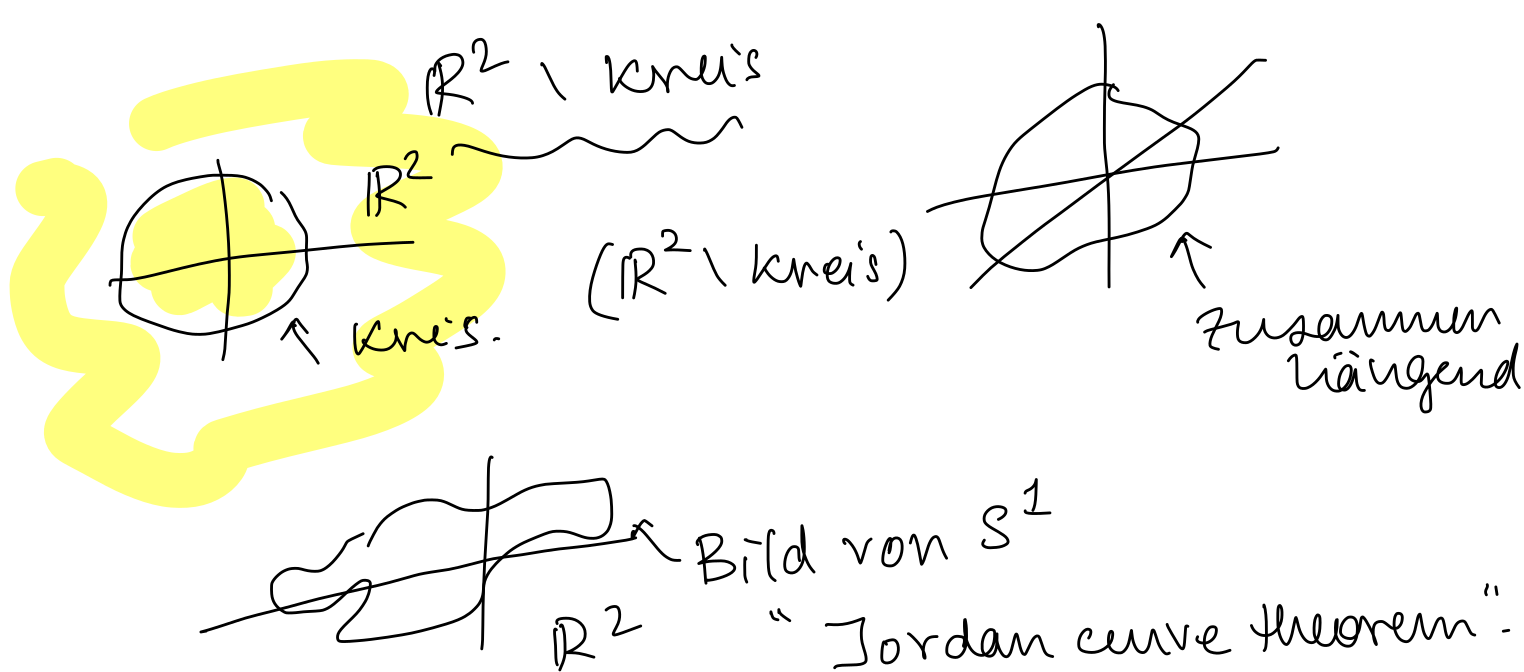 ℝ² \ Kreis
ℝ²
(ℝ² \ Kreis)
Kreis.
Zusammen
hängend
Bild von S¹
ℝ²
"Jordan curve theorem".